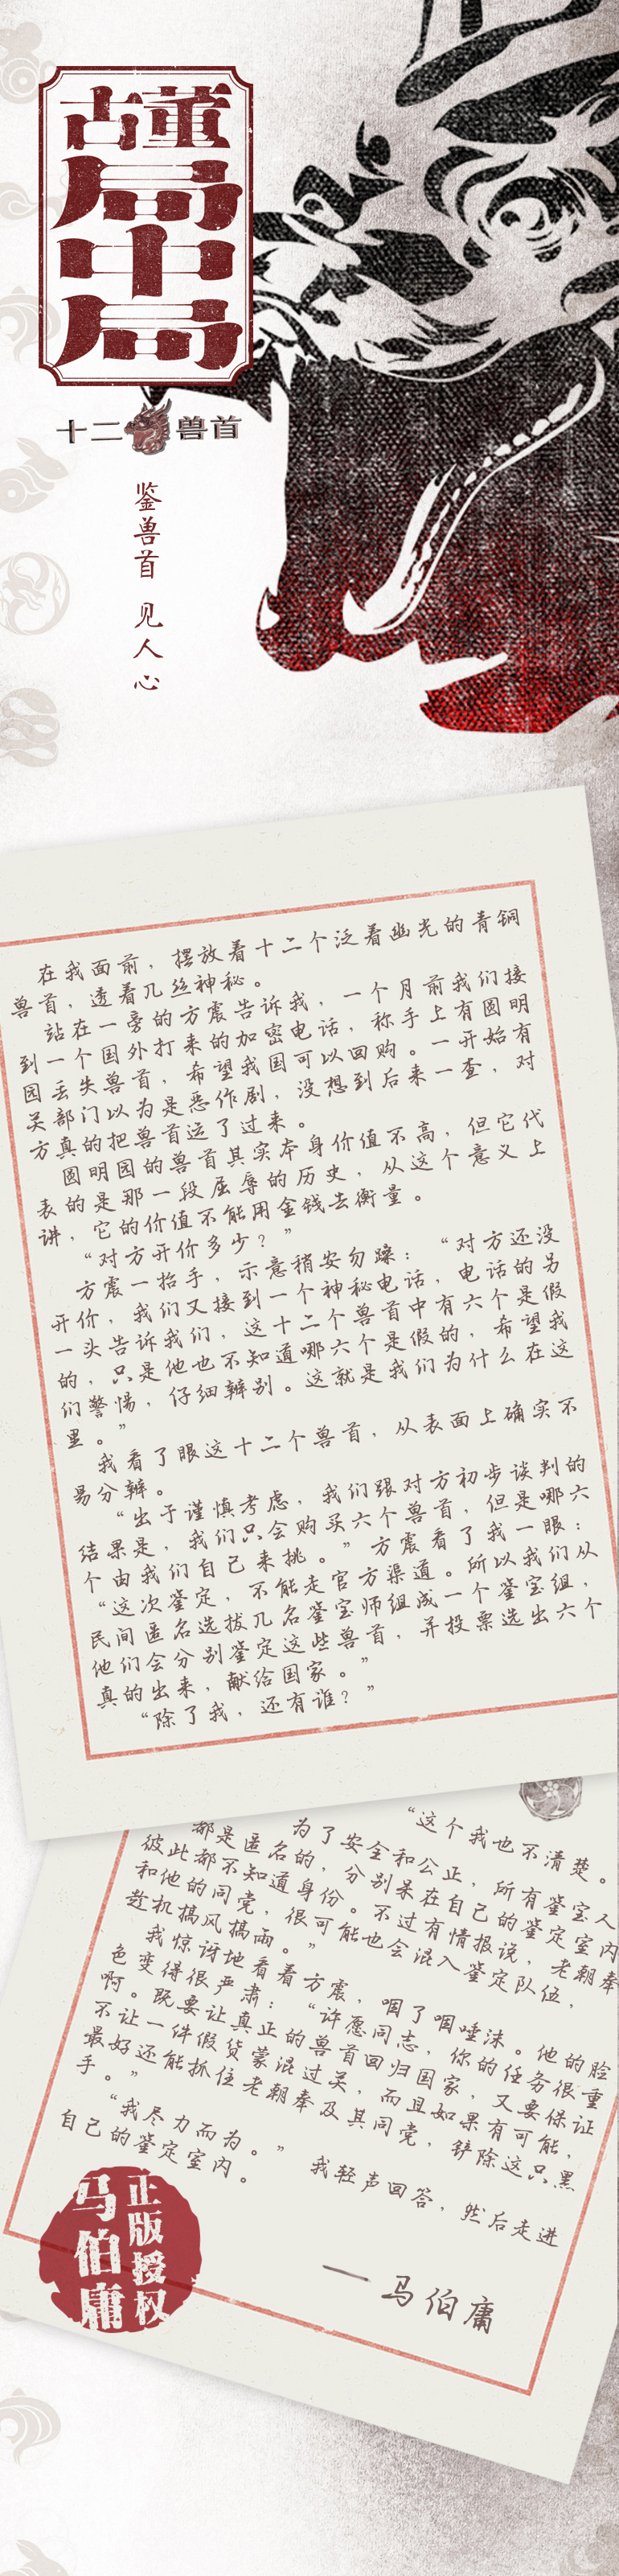 古董
局
中
局
十二 兽首
鉴兽首 见人心
在我面前，摆放着十二个泛着幽光的青铜
兽首，透着几丝神秘。
站在一旁的方震告诉我，一个月前我们接
到一个国外打来的加密电话，称手上有圆明
园丢失兽首，希望我国可以回购。一开始有
关部门以为是恶作剧，没想到后来一查，对
方真的把兽首运了过来。
圆明园的兽首其实本身价值不高，但它代
表的是那一段屈辱的历史，从这个意义上
讲，它的价值不能用金钱去衡量。
“对方开价多少？”
方震一抬手，示意稍安勿躁：“对方还没
开价，我们又接到一个神秘电话，电话的另
一头告诉我们，这十二个兽首中有六个是假
的，只是他也不知道哪六个是假的，希望我
们警惕，仔细辨别。这就是我们为什么在这
里。”
我看了眼这十二个兽首，从表面上确实不
易分辨。
“出于谨慎考虑，我们跟对方初步谈判的
结果是，我们只会购买六个兽首，但是哪六
个由我们自己来挑。”方震看了我一眼：
“这次鉴定，不能走官方渠道。所以我们从
民间匿名选拔几名鉴宝师组成一个鉴宝组，
他们会分别鉴定这些兽首，并投票选出六个
真的出来，献给国家。”
“除了我，还有谁？”
“这个我也不清楚。
为了安全和公正，所有鉴宝人
都是匿名的，分别呆在自己的鉴定室内
彼此都不知道身份。不过有情报说，老朝奉
和他的同党，很可能也会混入鉴定队伍，
趁机搞风搞雨。”
我惊讶地看着方震，咽了咽唾沫。他的脸
色变得很严肃：“许愿同志，你的任务很重
啊。既要让真正的兽首回归国家，又要保证
不让一件假货蒙混过关，而且如果有可能，
最好还能抓住老朝奉及其同党，铲除这只黑
手。”
“我尽力而为。”我轻声回答，然后走进
自己的鉴定室内。
—马伯庸
正版授权
马伯庸